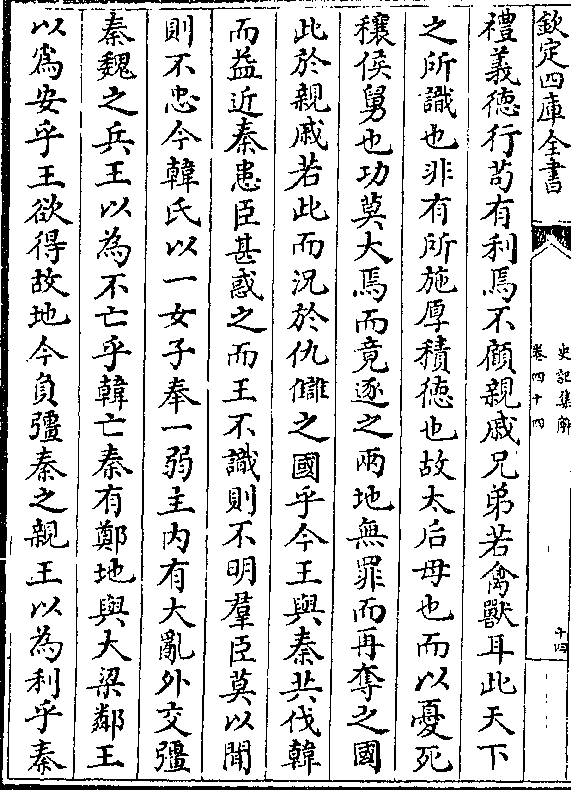 欽定四庫全書
史記集解
卷四十四
十四
禮義徳行茍有利焉不顧親戚兄弟若禽獸耳此天下
之所識也非有所施厚積徳也故太后母也而以憂死
穰侯舅也功莫大焉而竟逐之兩地無罪而再奪之國
此於親戚若此而況於仇讎之國乎今王與秦共伐韓
而益近秦患臣甚惑之而王不識則不明羣臣莫以聞
則不忠今韓氏以一女子奉一弱主内有大亂外交彊
秦魏之兵王以為不亡乎韓亡秦有鄭地與大梁鄰王
以爲安乎王欲得故地今負彊秦之親王以為利乎秦